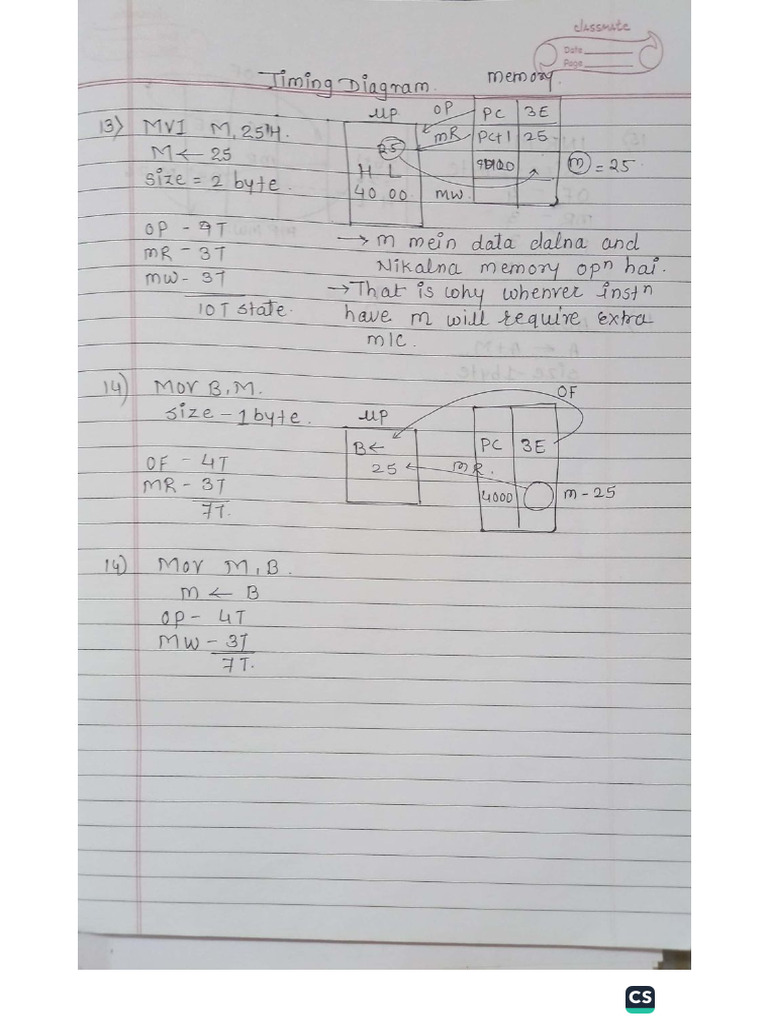 classmate
Date
Page
Timing Diagram.
memory.
13) MVI M, 25H.
M ← 25
size = 2 byte.
OP - 4T
MR - 3T
MW - 3T
10 T state.
μp
25
H L
40 00
OP
MR
MW
PC 3E
PC+1 25
m = 25.
→ m mein data dalna and
Nikalna memory opn hai.
→ That is why whenver instn
have m will require extra
m/c.
14) Mov B, M.
size - 1 byte.
OF - 4T
MR - 3T
7T.
μp
B ←
25
OF
MR.
PC 3E
4000
m - 25
14) Mov M, B.
M ← B
OP - 4T
MW - 3T
7T.
CS